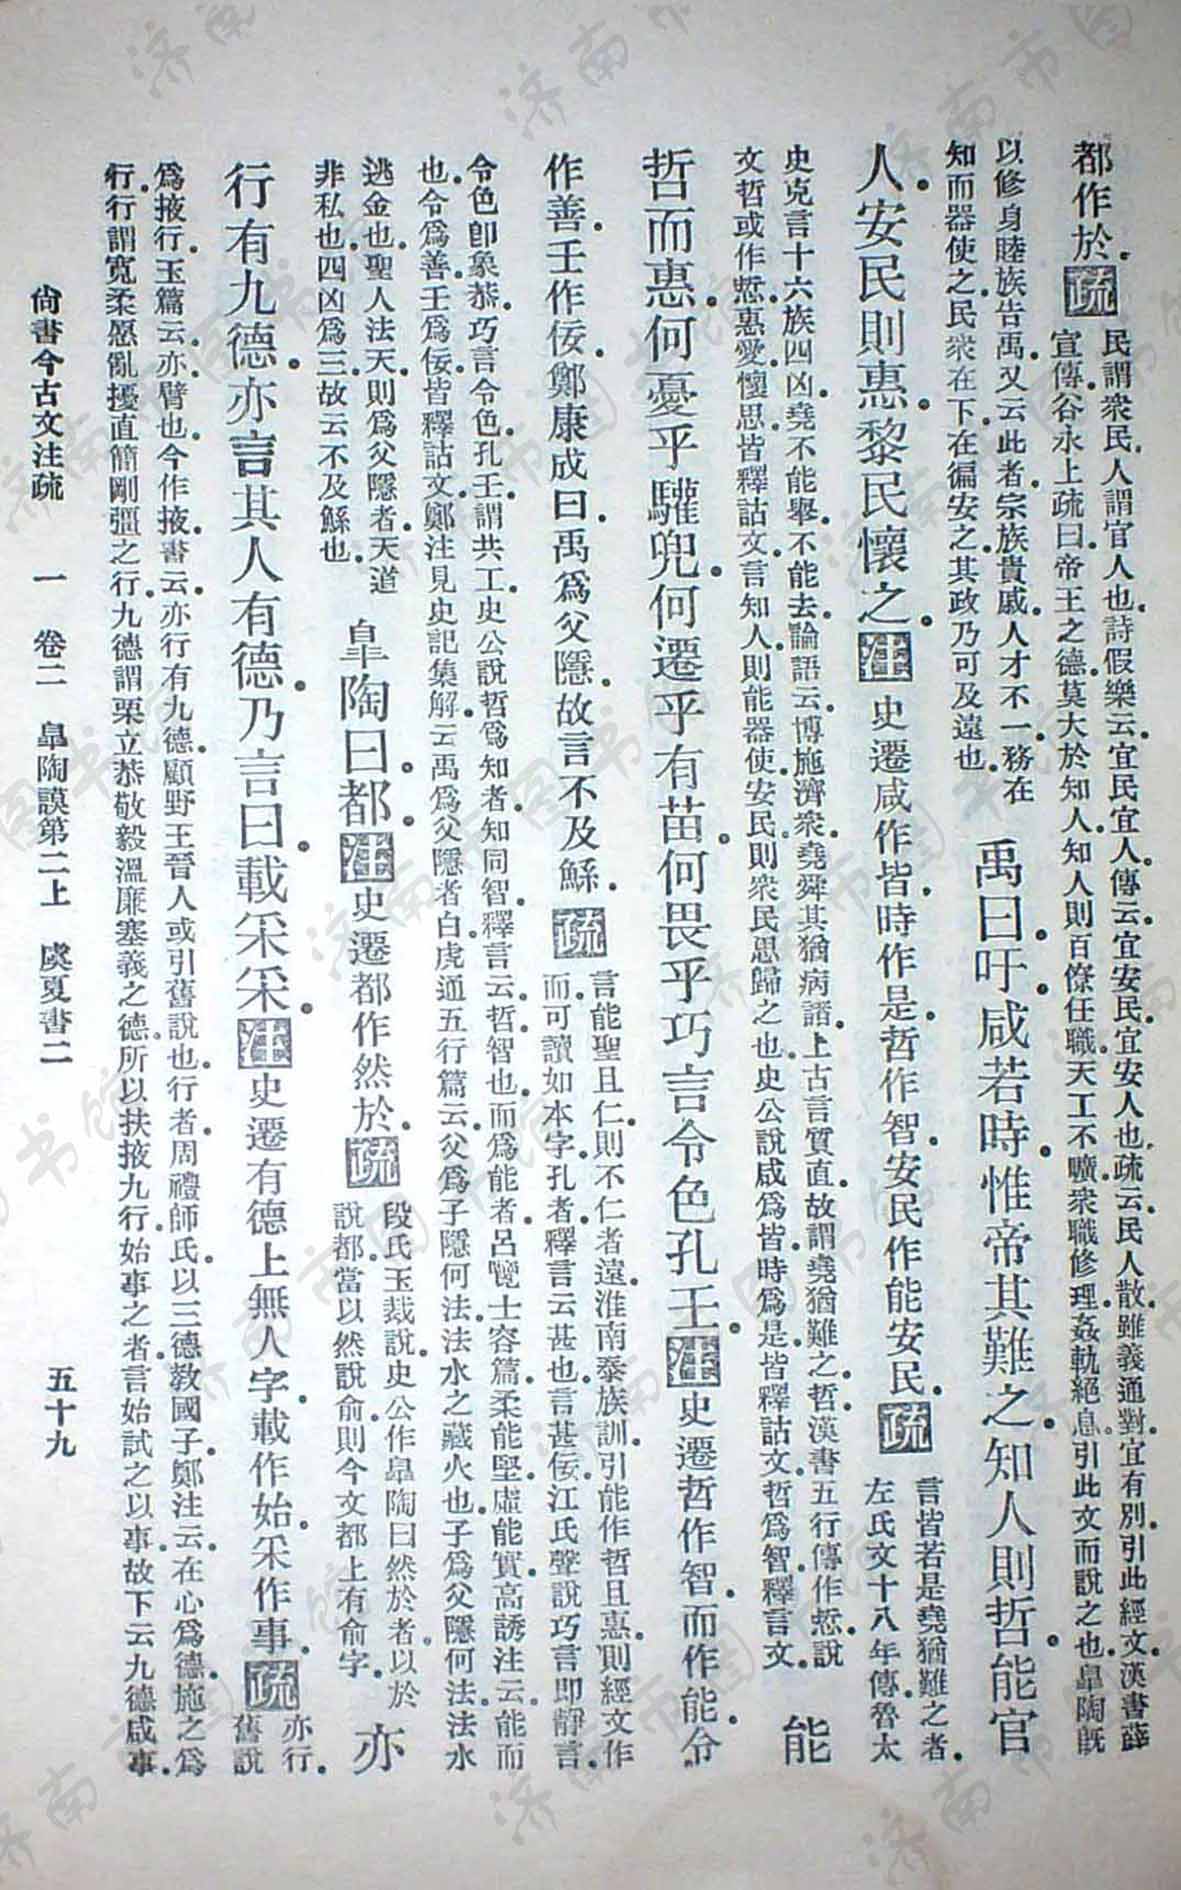 都作於。疏
民謂衆民。人謂官人也。詩假樂云。宜民宜人。傳云。宜安民。宜安人也。疏云。民人散雖義通。對宜有別。引此經文。漢書薛
宣傳。谷永上疏曰。帝王之德。莫大於知人。知人則百僚任職。天工不曠。衆職修理。姦軌絕息。引此文而說之也。皐陶旣
以修身睦族告禹。又云此者。宗族貴戚。人才不一。務在
知而器使之。民衆在下。在徧安之。其政乃可及遠也。
禹曰。吁。咸若時。惟帝其難之。知人則哲。能官
人。安民則惠。黎民懷之。注史遷咸作皆。時作是。哲作智。安民作能安民。疏
言皆若是。堯猶難之者。
左氏文十八年傳。魯太
史克言十六族四凶。堯不能舉。不能去。論語云。博施濟衆。堯舜其猶病諸。上古言質直。故謂堯猶難之。哲。漢書五行傳作悊。說
文哲或作悊。惠愛。懷思。皆釋詁文。言知人。則能器使。安民。則衆民思歸之也。史公說咸爲皆。時爲是。皆釋詁文。哲爲智。釋言文。
能
哲而惠。何憂乎驩兜。何遷乎有苗。何畏乎巧言令色孔壬。注史遷哲作智。而作能。令
作善。壬作佞。鄭康成曰。禹爲父隱。故言不及鯀。疏
言能聖且仁。則不仁者遠。淮南泰族訓。引能作哲且惠。則經文作
而。可讀如本字。孔者。釋言云。甚也。言甚佞。江氏聲說巧言卽靜言。
令色卽象恭。巧言令色孔壬。謂共工。史公說哲爲知者。知同智。釋言云。哲。智也。而爲能者。呂覽士容篇。柔能堅。虛能實。高誘注云。能而
也。令爲善。壬爲佞。皆釋詁文。鄭注見史記集解。云禹爲父隱者。白虎通五行篇云。父爲子隱何法。法水之藏火也。子爲父隱何法。法水
逃金也。聖人法天。則爲父隱者。天道
非私也。四凶爲三。故云不及鯀也。
皐陶曰。都。注史遷都作然於。疏
段氏玉裁說。史公作皐陶曰然於者。以於
說都。當以然說俞。則今文都上有俞字。
亦
行有九德。亦言其人有德。乃言曰。載采采。注史遷有德上無人字。載作始。采作事。疏
亦行。
舊說
爲掖行。玉篇云。亦。臂也。今作掖。書云。亦行有九德。顧野王晉人。或引舊說也。行者。周禮師氏。以三德教國子。鄭注云。在心爲德。施之爲
行。行謂寬柔愿亂擾直簡剛彊之行。九德謂栗立恭敬毅溫廉塞義之德。所以扶掖九行。始事之者。言始試之以事。故下云九德咸事。
尙書今古文注疏　一　卷二　皐陶謨第二上　虞夏書二　五十九
濟南市图书馆